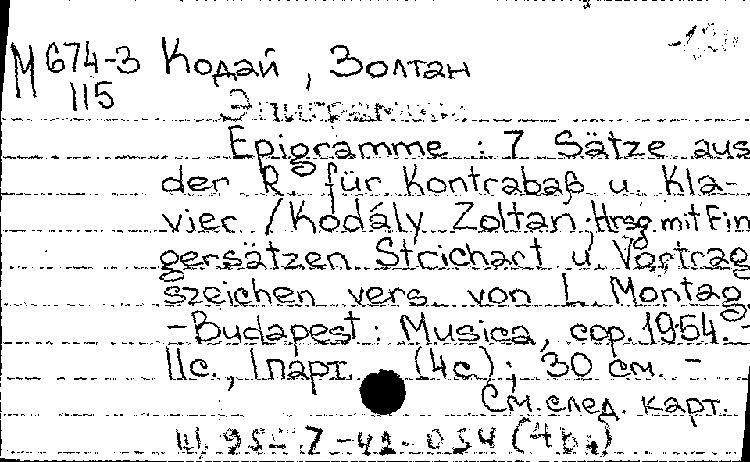 М 674-3 Кодай, Золтан
115
Эпиграммы.
Epigramme : 7 Sätze aus
der R. für Kontrabaß u. Kla-
vier / Kodály Zoltan; Hrsg. mit Fin
gersätzen Strichart u. Vortrag
szeichen vers. von L. Montag.
- Budapest : Musica, cop. 1954. -
11с., 1парт. (4с); 30 см. -
См. след. карт.